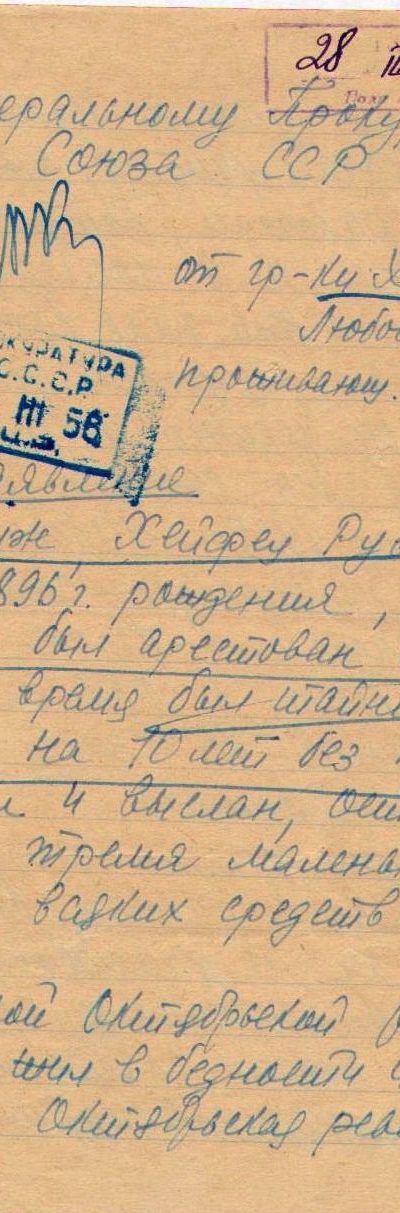 28 III
еральному Проку
Союза ССР
от гр-ки Х
Любо
проживающ.
КУРАТУРА
С.С.С.Р.
III 56
аявление
уж, Хейфец Ру
896 г. рождения,
был арестован
время был тайн
на 10 лет без
и выслан, ост
тремя малень
всяких средств
ой Октябрьской
жил в бедности
Октябрьская рев